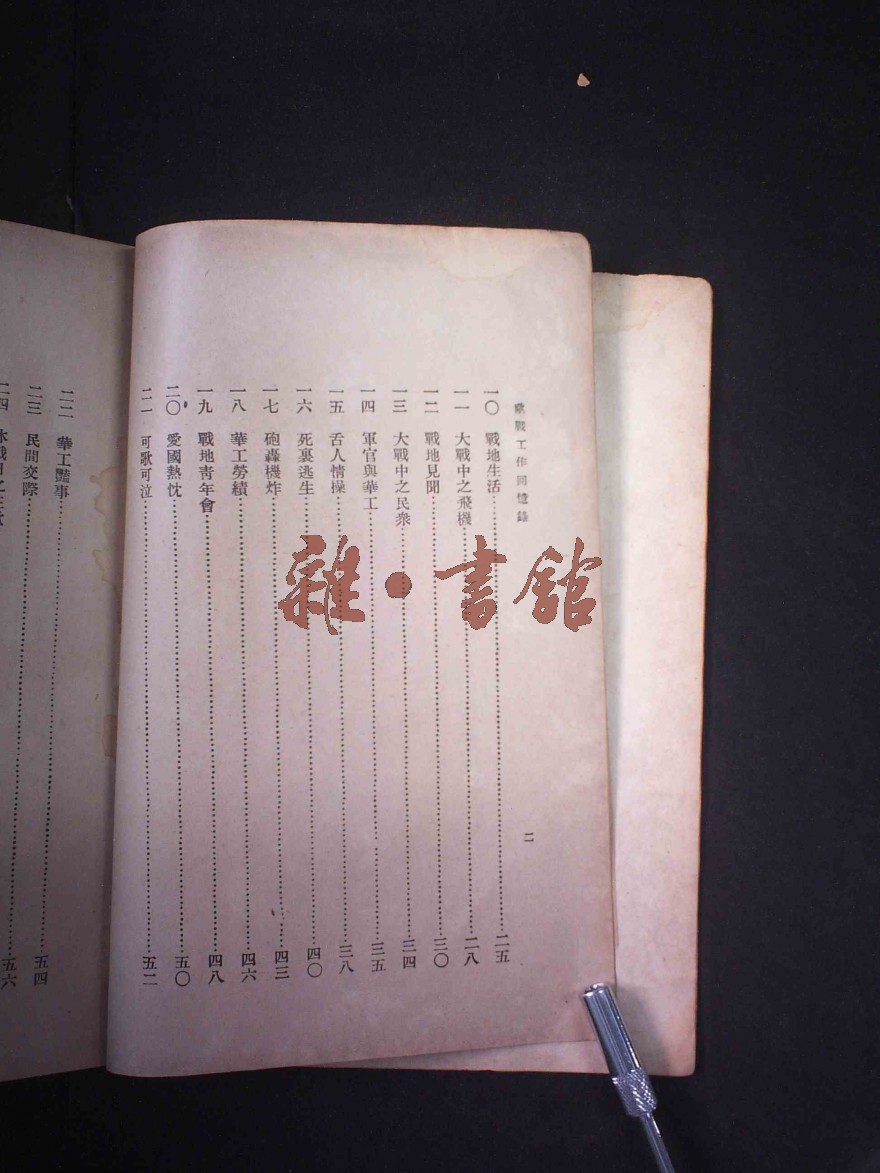 歐戰工作回憶錄
二
一〇 戰地生活 二五
一一 大戰中之飛機 二八
一二 戰地見聞 三〇
一三 大戰中之民衆 三四
一四 軍官與華工 三五
一五 舌人情操 三八
一六 死裏逃生 四〇
一七 砲轟機炸 四三
一八 華工勞績 四六
一九 戰地靑年會 四八
二〇 愛國熱忱 五〇
二一 可歌可泣 五二
二二 華工豔事
二三 民間交際 五四
二四 休戰日之 五六
雜·書舘